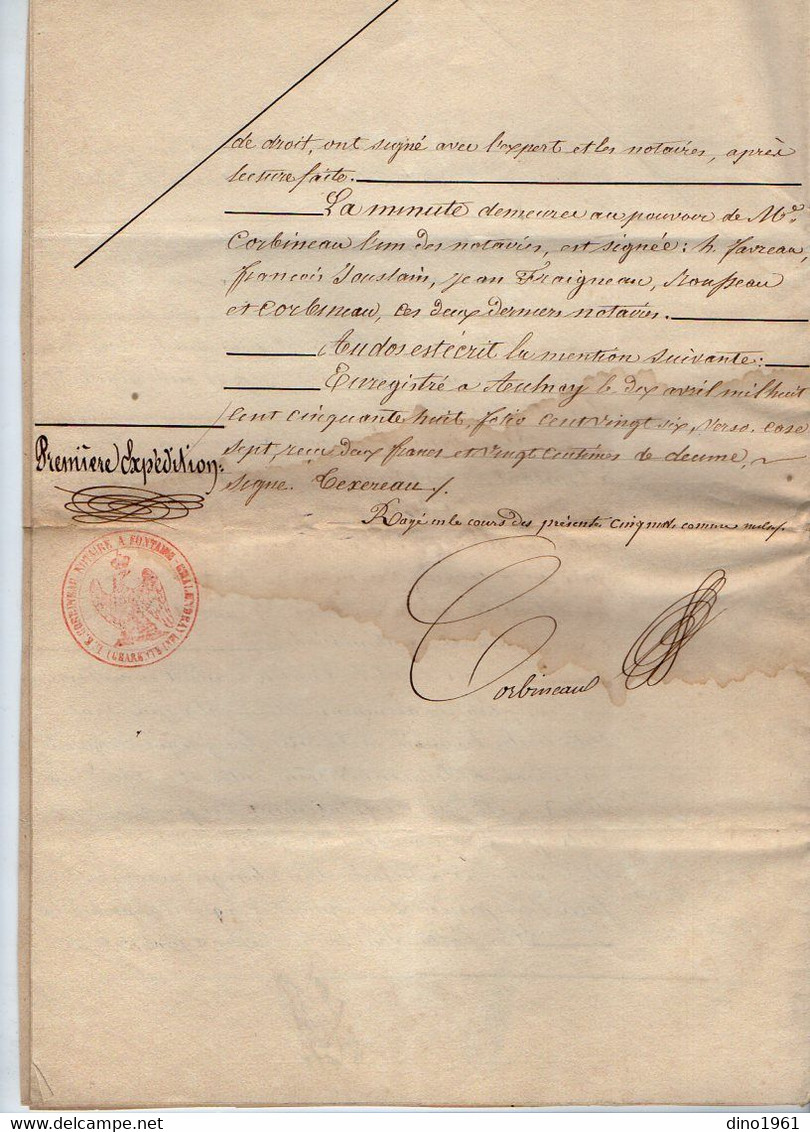 de droit, ont signé avec l'expert et les notaires, après
lecture faite.
La minute demeurée au pouvoir de Me
Corbineau l'un des notaires, est signée: h. favreau,
françois Jouslain, jean Fraigneau, Rousseau
et Corbineau, ces deux derniers notaires.
Au dos est écrit la mention suivante:
Enregistré à Aulnay le dix avril mil huit
cent cinquante huit, folio cent vingt six, verso, case
sept, reçu deux francs et vingt centimes de décime,
signé. Texereau /.
Première Expédition.
Rayé en le cours des présentes cinq mots comme nuls /.
L. E. CORBINEAU NOTAIRE A FONTAINE CHALENDRAY (CHARENTE INF)
Corbineau
dino1961